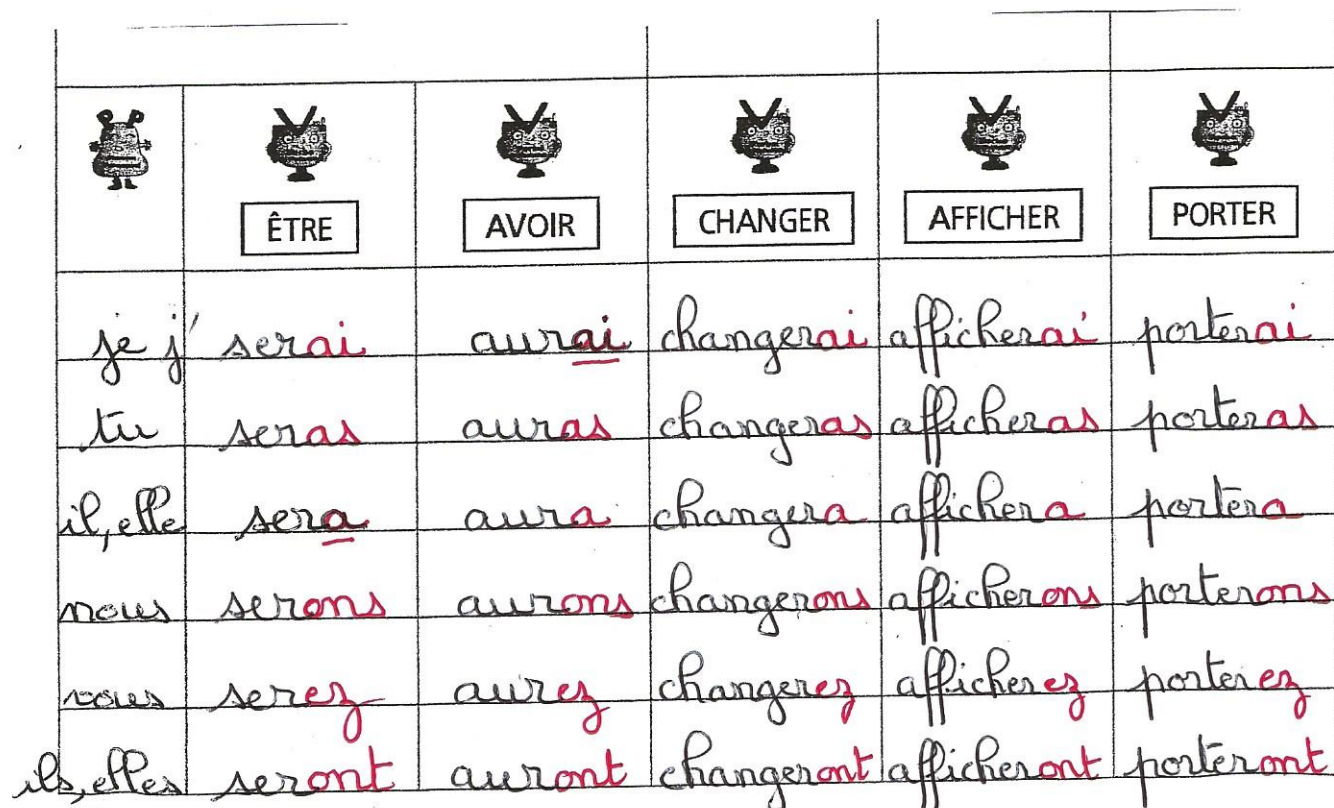 ÊTRE AVOIR CHANGER AFFICHER PORTER
je j' serai aurai changerai afficherai porterai
tu seras auras changeras afficheras porteras
il, elle sera aura changera affichera portera
nous serons aurons changerons afficherons porterons
vous serez aurez changerez afficherez porterez
ils, elles seront auront changeront afficheront porteront